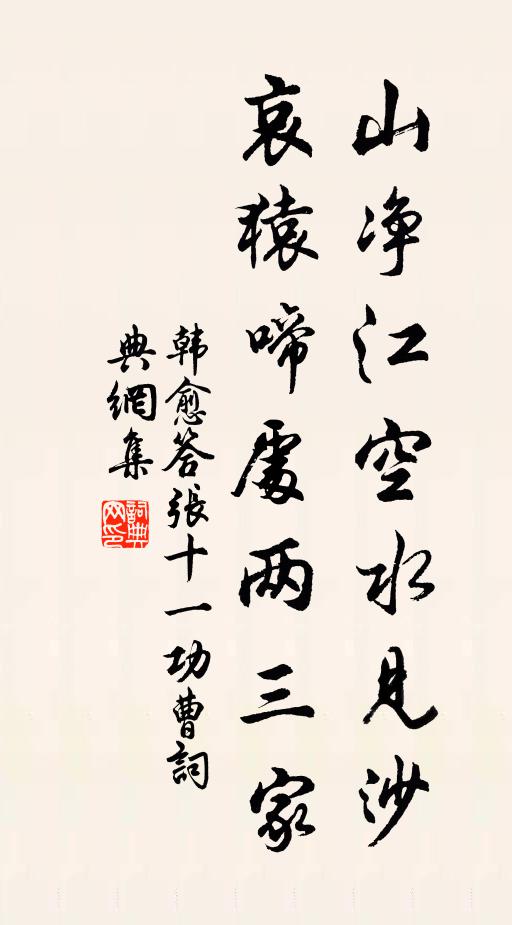 山净江空水見沙
哀猿啼處两三家
韩愈答張十一功曹詞
典網集
詞典网印